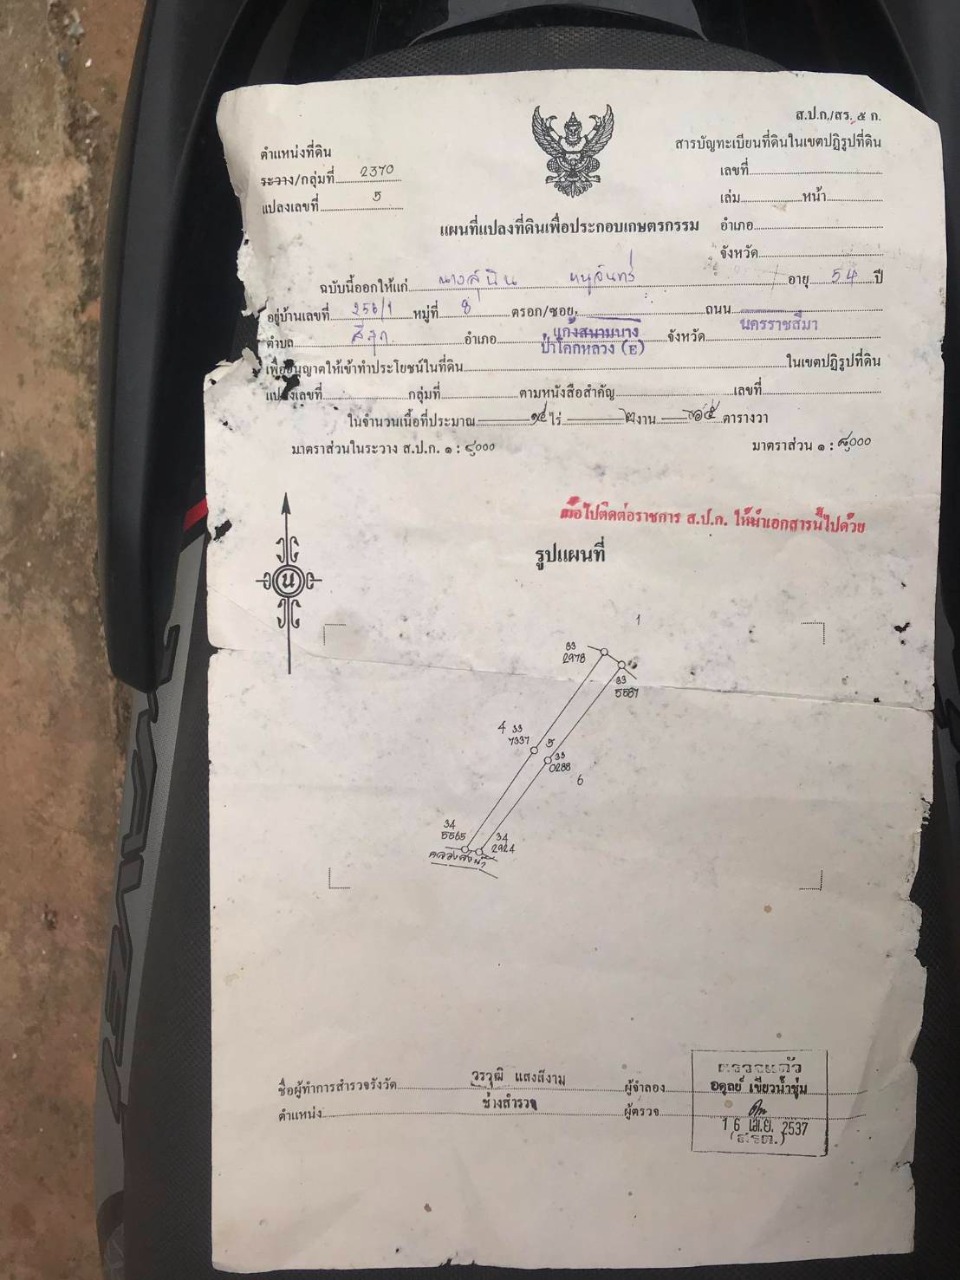 ส.ป.ก./สร. ๕ ก.
สารบัญทะเบียนที่ดินในเขตปฏิรูปที่ดิน
ตำแหน่งที่ดิน
ระวาง/กลุ่มที่ 2370
แปลงเลขที่ 5
เลขที่
เล่ม หน้า
อำเภอ
จังหวัด
แผนที่แปลงที่ดินเพื่อประกอบเกษตรกรรม
ฉบับนี้ออกให้แก่ นางสุนิน หนูจันทร์ อายุ 54 ปี
อยู่บ้านเลขที่ 256/1 หมู่ที่ 8 ตรอก/ซอย ถนน
ตำบล สีสุก อำเภอ แก้งสนามนาง จังหวัด นครราชสีมา
เพื่ออนุญาตให้เข้าทำประโยชน์ในที่ดิน ป่าโคกหลวง (E) ในเขตปฏิรูปที่ดิน
แปลงเลขที่ กลุ่มที่ ตามหนังสือสำคัญ เลขที่
ในจำนวนเนื้อที่ประมาณ ๑๔ ไร่ ๒ งาน ๑๕ ตารางวา
มาตราส่วนในระวาง ส.ป.ก. ๑ : ๘๐๐๐
มาตราส่วน ๑ : ๘๐๐๐
เมื่อไปติดต่อราชการ ส.ป.ก. ให้นำเอกสารนี้ไปด้วย
รูปแผนที่
น
1
33
2978
33
5581
4
33
7337
5
33
0288
6
34
5565
34
2924
คลองส่งน้ำ
ชื่อผู้ทำการสำรวจรังวัด วรวุฒิ แสงสีงาม ผู้จำลอง
ตำแหน่ง ช่างสำรวจ ผู้ตรวจ
ตรวจแล้ว
อดุลย์ เขียวน้ำชุ่ม
16 เม.ย. 2537